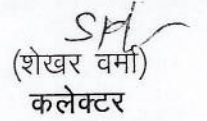 (शेखर वर्मा)
कलेक्टर